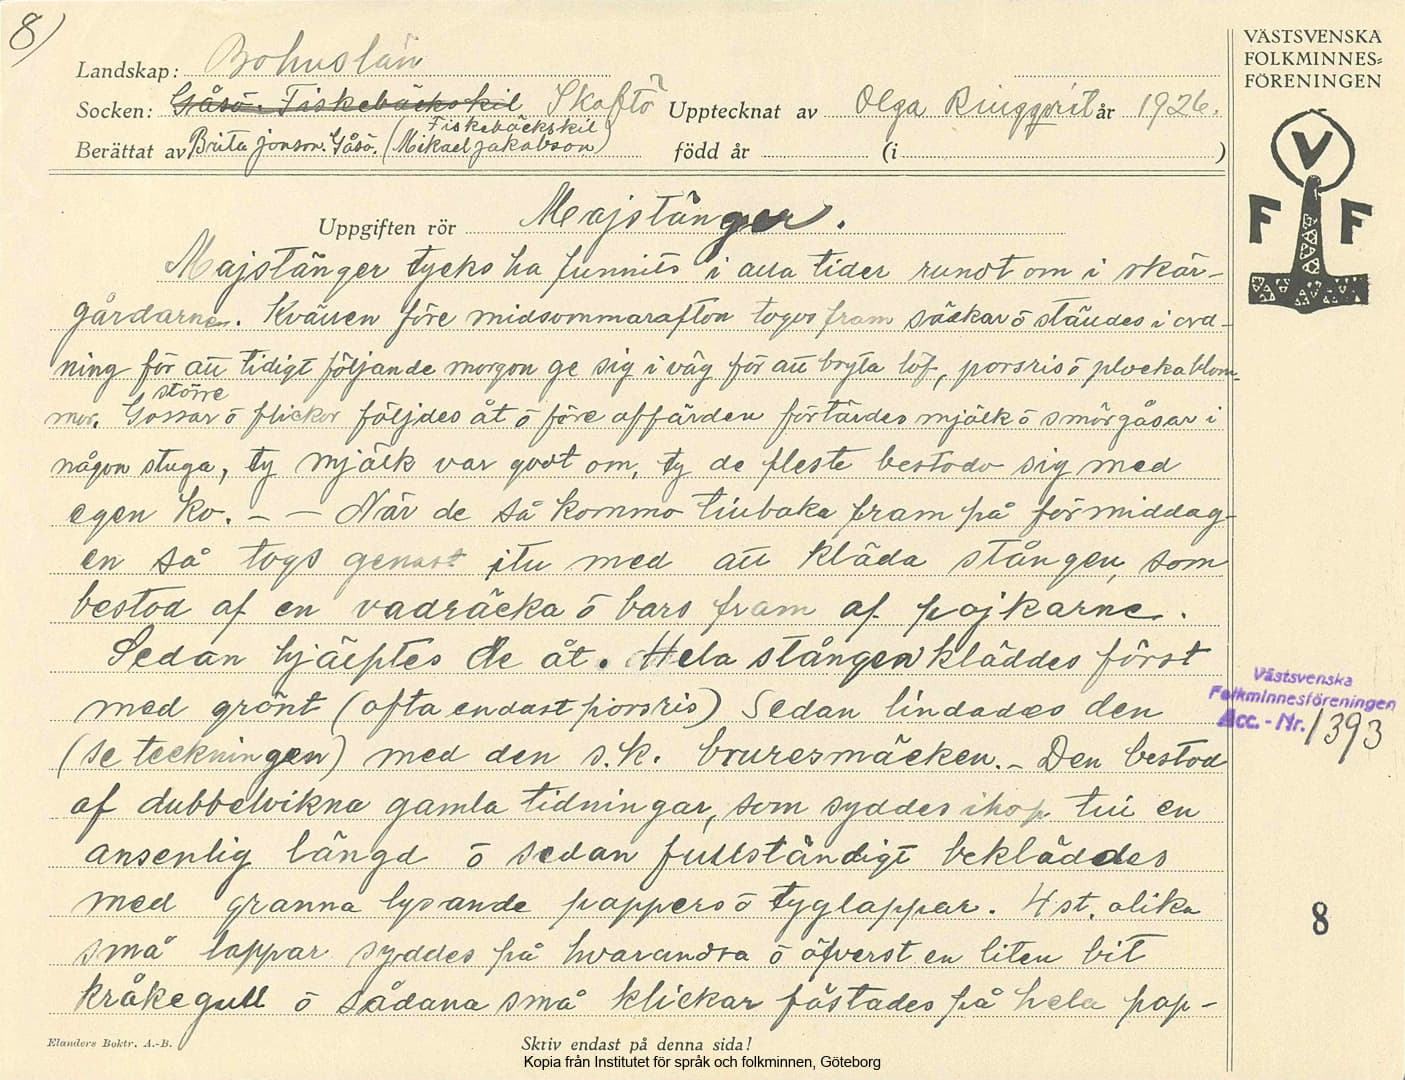 8)
Landskap: Bohuslän
Socken: Gåsö. Fiskebäckskil Skaftö Upptecknat av Olga Ringqvist år 1926.
Fiskebäckskil
Berättat av Brita Jonson. Gåsö. (Mikael Jakobson) född år (i )
Uppgiften rör Majstänger.
Majstänger tycks ha funnits i alla tider rundt om i skär-
gårdarne. Kvällen före midsommarafton togos fram säckar ö ställdes i ord-
ning för att tidigt följande morgon ge sig i väg för att bryta löf, porsris ö plocka blom-
större
mor. Gossar ö flickor följdes åt ö före affärden förtärdes mjölk ö smörgåsar i
någon stuga, ty mjölk var godt om, ty de fleste bestodo sig med
egen ko. – – När de så kommo tillbaka fram på förmiddag-
en så togs genast itu med att kläda stången, som
bestod af en vadräcka ö bars fram af pojkarne.
Sedan hjälptes de åt. Hela stången kläddes först
med grönt (ofta endast porsris) Sedan lindades den
(se teckningen) med den s.k. bruresmäcken. – Den bestod
af dubbelvikna gamla tidningar, som syddes ihop till en
ansenlig längd ö sedan fullständigt bekläddes
med granna lysande pappers ö tyglappar. 4 st. olika
små lappar syddes på hvarandra ö öfverst en liten bit
kråkegull ö sådana små klickar fästades på hela pap-
Elanders Boktr. A.-B.
Skriv endast på denna sida!
Kopia från Institutet för språk och folkminnen, Göteborg
VÄSTSVENSKA
FOLKMINNES-
FÖRENINGEN
V
F F
Västsvenska
Folkminnesföreningen
Acc. - Nr. 1393
8